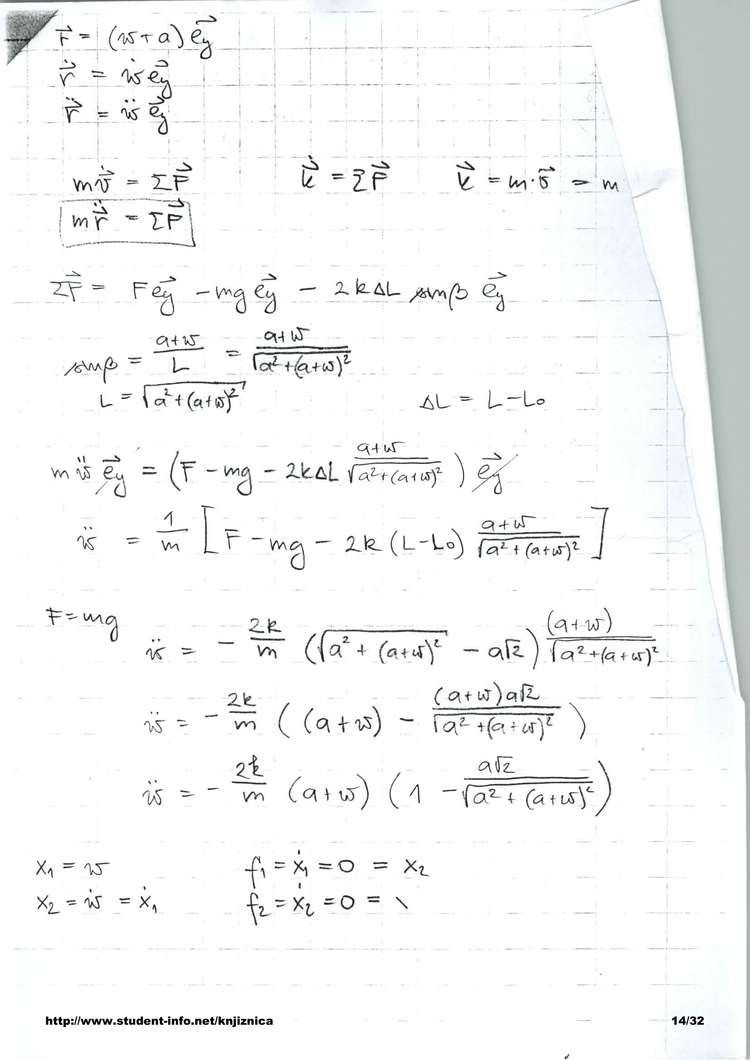 r⃗ = (w+a) e⃗y
ṙ⃗ = ẇ e⃗y
r̈⃗ = ẅ e⃗y
m v̇⃗ = ΣF⃗   k̇⃗ = ΣF⃗   k⃗ = m·v⃗ = m
m r̈⃗ = ΣF⃗
ΣF⃗ = F e⃗y - mg e⃗y - 2kΔL sinβ e⃗y
sinβ = (a+w)/L = (a+w)/√(a²+(a+w)²)
L = √(a²+(a+w)²)   ΔL = L-L₀
m ẅ e⃗y = (F - mg - 2kΔL (a+w)/√(a²+(a+w)²)) e⃗y
ẅ = 1/m [F - mg - 2k (L-L₀) (a+w)/√(a²+(a+w)²)]
F=mg   ẅ = - 2k/m (√(a²+(a+w)²) - a√2) (a+w)/√(a²+(a+w)²)
ẅ = - 2k/m ((a+w) - (a+w)a√2/√(a²+(a+w)²))
ẅ = - 2k/m (a+w) (1 - a√2/√(a²+(a+w)²))
x₁ = w   f₁ = ẋ₁ = 0 = x₂
x₂ = ẇ = ẋ₁   f₂ = ẋ₂ = 0 = \
http://www.student-info.net/knjiznica   14/32